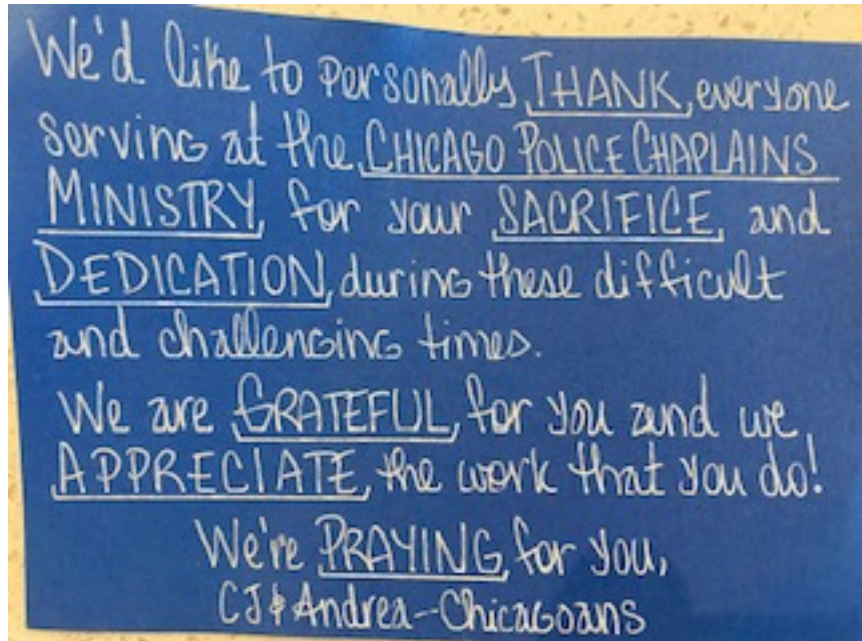 We'd like to personally THANK everyone
serving at the CHICAGO POLICE CHAPLAINS
MINISTRY for your SACRIFICE and
DEDICATION during these difficult
and challenging times.
We are GRATEFUL for you and we
APPRECIATE the work that you do!
We're PRAYING for you,
CJ & Andrea--Chicagoans